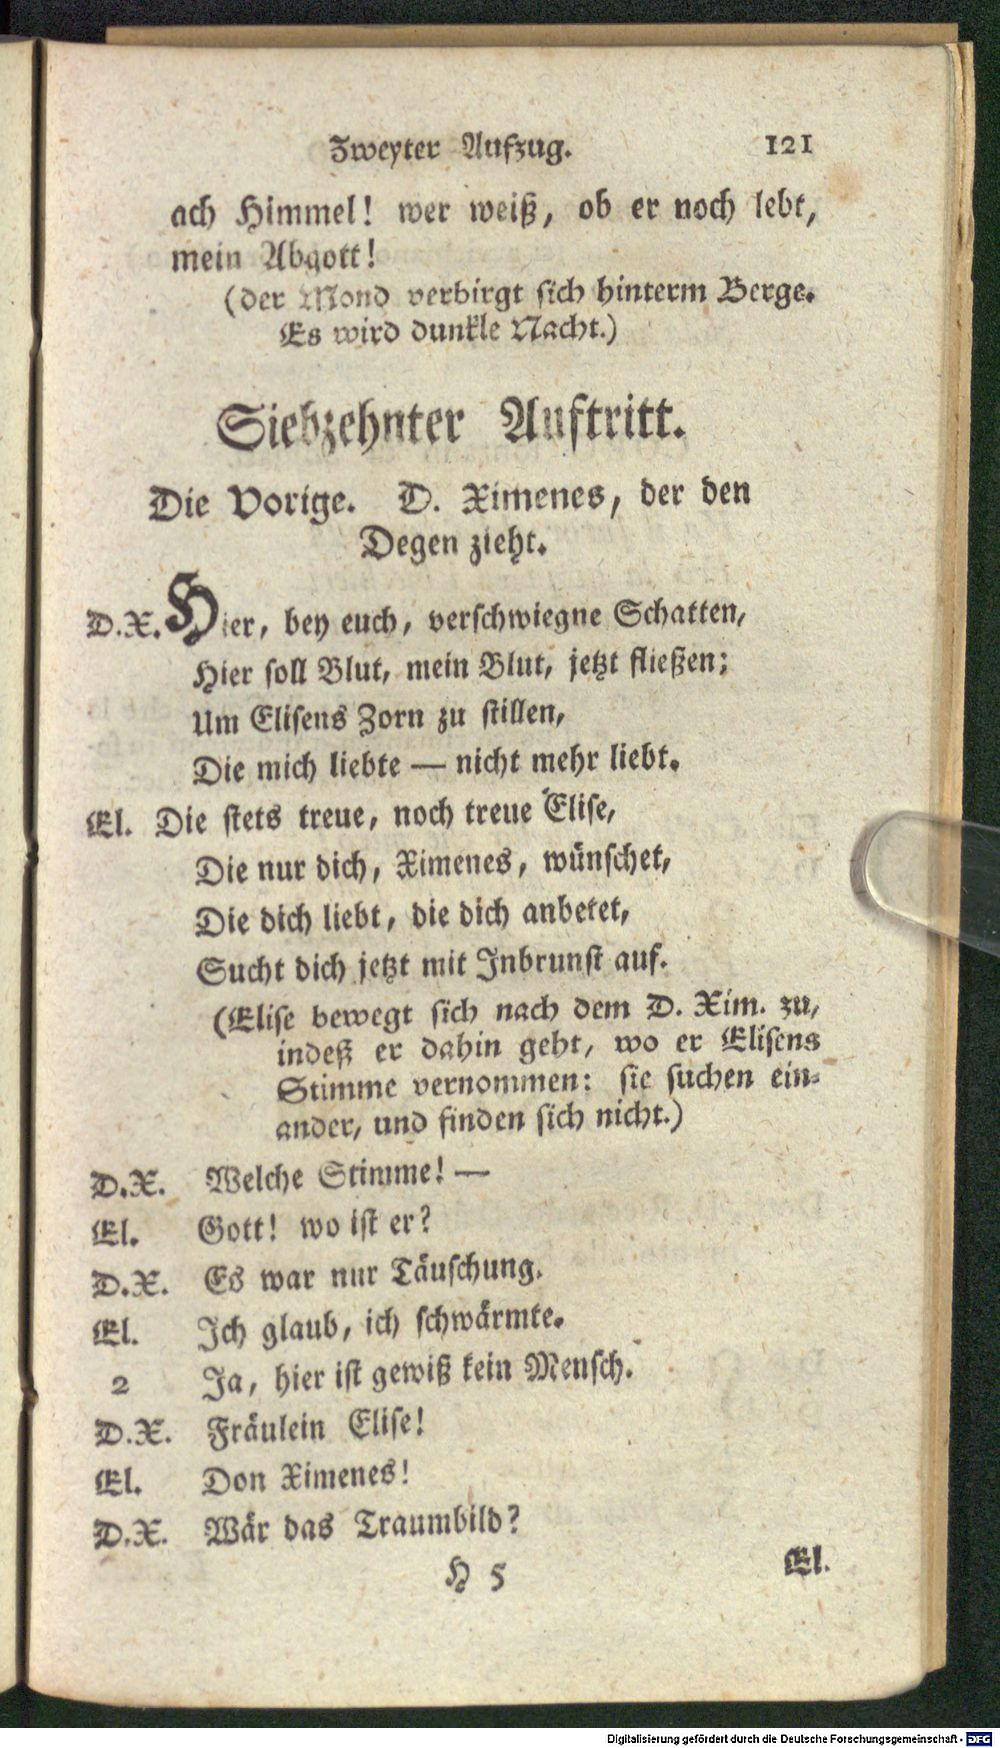 Zweyter Aufzug. 121
ach Himmel! wer weiß, ob er noch lebt,
mein Abgott!
(der Mond verbirgt sich hinterm Berge.
Es wird dunkle Nacht.)
Siebzehnter Auftritt.
Die Vorige. D. Ximenes, der den
Degen zieht.
D.X. Hier, bey euch, verschwiegne Schatten,
Hier soll Blut, mein Blut, jetzt fließen;
Um Elisens Zorn zu stillen,
Die mich liebte — nicht mehr liebt.
El. Die stets treue, noch treue Elise,
Die nur dich, Ximenes, wünschet,
Die dich liebt, die dich anbetet,
Sucht dich jetzt mit Inbrunst auf.
(Elise bewegt sich nach dem D. Xim. zu,
indeß er dahin geht, wo er Elisens
Stimme vernommen: sie suchen ein-
ander, und finden sich nicht.)
D.X. Welche Stimme! —
El. Gott! wo ist er?
D.X. Es war nur Täuschung.
El. Ich glaub, ich schwärmte.
2 Ja, hier ist gewiß kein Mensch.
D.X. Fräulein Elise!
El. Don Ximenes!
D.X. Wär das Traumbild?
H 5 El.
Digitalisierung gefördert durch die Deutsche Forschungsgemeinschaft - DFG